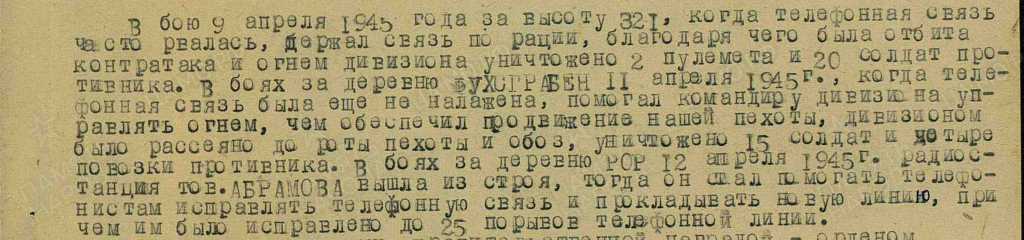 В бою 9 апреля 1945 года за высоту 321, когда телефонная связь
часто рвалась, держал связь по рации, благодаря чего была отбита
контратака и огнем дивизиона уничтожено 2 пулемета и 20 солдат про-
тивника. В боях за деревню БУХСГРАБЕН 11 апреля 1945г., когда теле-
фонная связь была еще не налажена, помогал командиру дивизиона уп-
равлять огнем, чем обеспечил продвижение нашей пехоты, дивизионом
было рассеяно до роты пехоты и обоз, уничтожено 15 солдат и четыре
повозки противника. В боях за деревню РОР 12 апреля 1945г. радиос-
танция тов.АБРАМОВА вышла из строя, тогда он стал помогать телефо-
нистам исправлять телефонную связь и прокладывать новую линию, при
чем им было исправлено до 25 порывов телефонной линии.
наградой - орденом